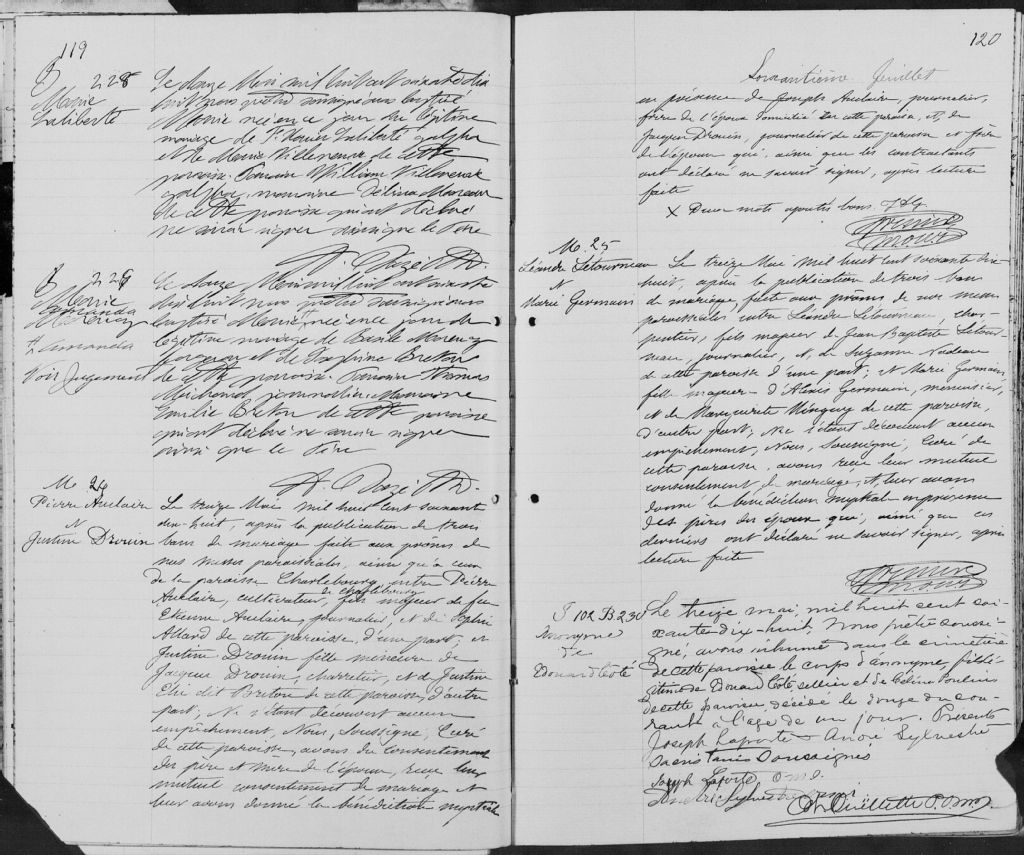 119
B 228
Marie
Laliberté
Le douze Mai mil huit cent soixante dix
huit nous prêtre soussigné avons baptisé
Marie née ce jour du légitime
mariage de F. Xavier Laliberté
et de Marie Villeneuve de cette
paroisse. Parrain William Villeneuve
marraine Délina Moreau
de cette paroisse qui ont déclaré
ne savoir signer ainsi que le Père
B 229
Marie
Amanda
+ Amanda
Voir Jugement
Le douze Mai mil huit cent soixante
dix huit nous prêtre soussigné avons
baptisé Marie + née ce jour du
légitime mariage de Basile
et de Joséphine Breton
de cette paroisse. Parrain Thomas
journalier Marraine
Emilie Breton de cette paroisse
qui ont déclaré ne savoir signer
ainsi que le Père
M. 24
Pierre Auclair
&
Justine Drouin
Le treize Mai mil huit cent soixante
dix-huit, après la publication de trois
bans de mariage faite aux prônes de
nos messes paroissiales, ainsi qu'à ceux
de la paroisse Charlesbourg, entre Pierre
de Charlesbourg
Auclaire, cultivateur, fils majeur de feu
Etienne Auclaire, journalier, et de Sophie
Allard de cette paroisse, d'une part; et
Justine Drouin fille mineure de
Jacques Drouin, charretier, et de Justine
Elie dit Breton de cette paroisse, d'autre
part; Ne s'étant découvert aucun
empêchement, Nous, Soussigné, Curé
de cette paroisse, avons du consentement
des père et mère de l'épouse, reçu leur
mutuel consentement de mariage et
leur avons donné la bénédiction nuptiale
120
Soixantième feuillet
en présence de Joseph Auclaire, journalier,
frère de l'époux domicilié en cette paroisse, et de
Jacques Drouin, journalier de cette paroisse et frère
de l'épouse qui, ainsi que les contractants
ont déclaré ne savoir signer, après lecture
faite
X Deux mots ajoutés bons.
M. 25
Léandre Létourneau
&
Marie Germain
Le treize Mai mil huit cent soixante dix-
huit, après la publication de trois bans
de mariage, faite aux prônes de nos messes
paroissiales entre Léandre Létourneau, char-
pentier, fils majeur de Jean Baptiste Létour-
neau, journalier, et de Suzanne Nadeau
de cette paroisse d'une part; et Marie Germain,
fille majeure d'Alexis Germain, menuisier,
et de Marguerite Minguy de cette paroisse,
d'autre part; Ne s'étant découvert aucun
empêchement, Nous, Soussigné, Curé de
cette paroisse, avons reçu leur mutuel
consentement de mariage, et leur avons
donné la bénédiction nuptiale en présence
des pères des époux qui, ainsi que ces
derniers ont déclaré ne savoir signer, après
lecture faite
S 102 B. 230
Anonyme
de
Edouard Coté
Le treize mai mil huit cent soi-
xante-dix-huit, Nous prêtre soussi-
gné, avons inhumé dans le cimetière
de cette paroisse le corps d'anonyme, fils lé-
gitime de Edouard Côté, sellier et de Célina Poulin
de cette paroisse, décédé le douze du cou-
rant à l'âge de un jour. Présents
Joseph Laporte André Sylvestre
Sacristains Soussignés
Joseph Laporte
André Sylvestre
Ouellette